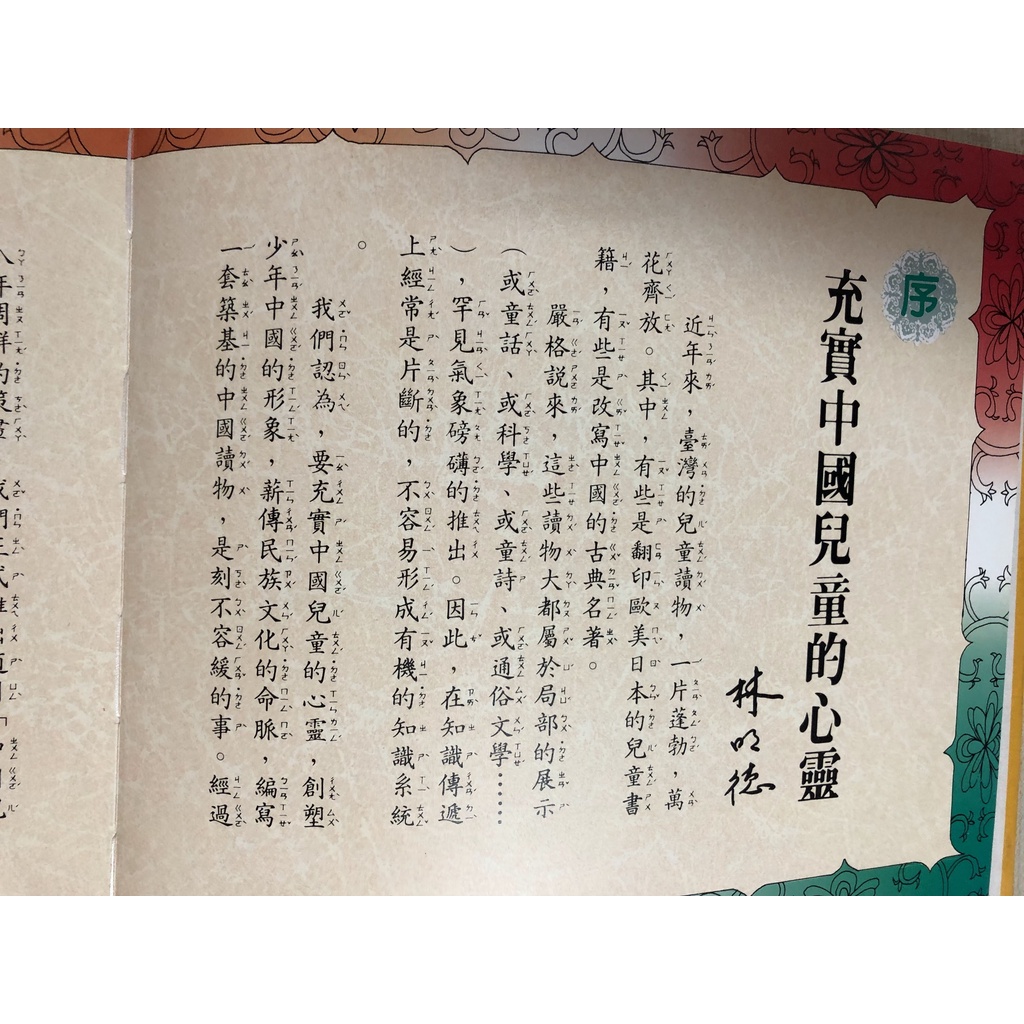 序
充實中國兒童的心靈
林明德
近年來，臺灣的兒童讀物，一片蓬勃，萬
花齊放。其中，有些是翻印歐美日本的兒童書
籍，有些是改寫中國的古典名著。
嚴格說來，這些讀物大都屬於局部的展示
（或童話、或科學、或童詩、或通俗文學……
），罕見氣象磅礴的推出。因此，在知識傳遞
上經常是片斷的，不容易形成有機的知識系統
。
我們認為，要充實中國兒童的心靈，創塑
少年中國的形象，薪傳民族文化的命脈，編寫
一套築基的中國讀物，是刻不容緩的事。經過